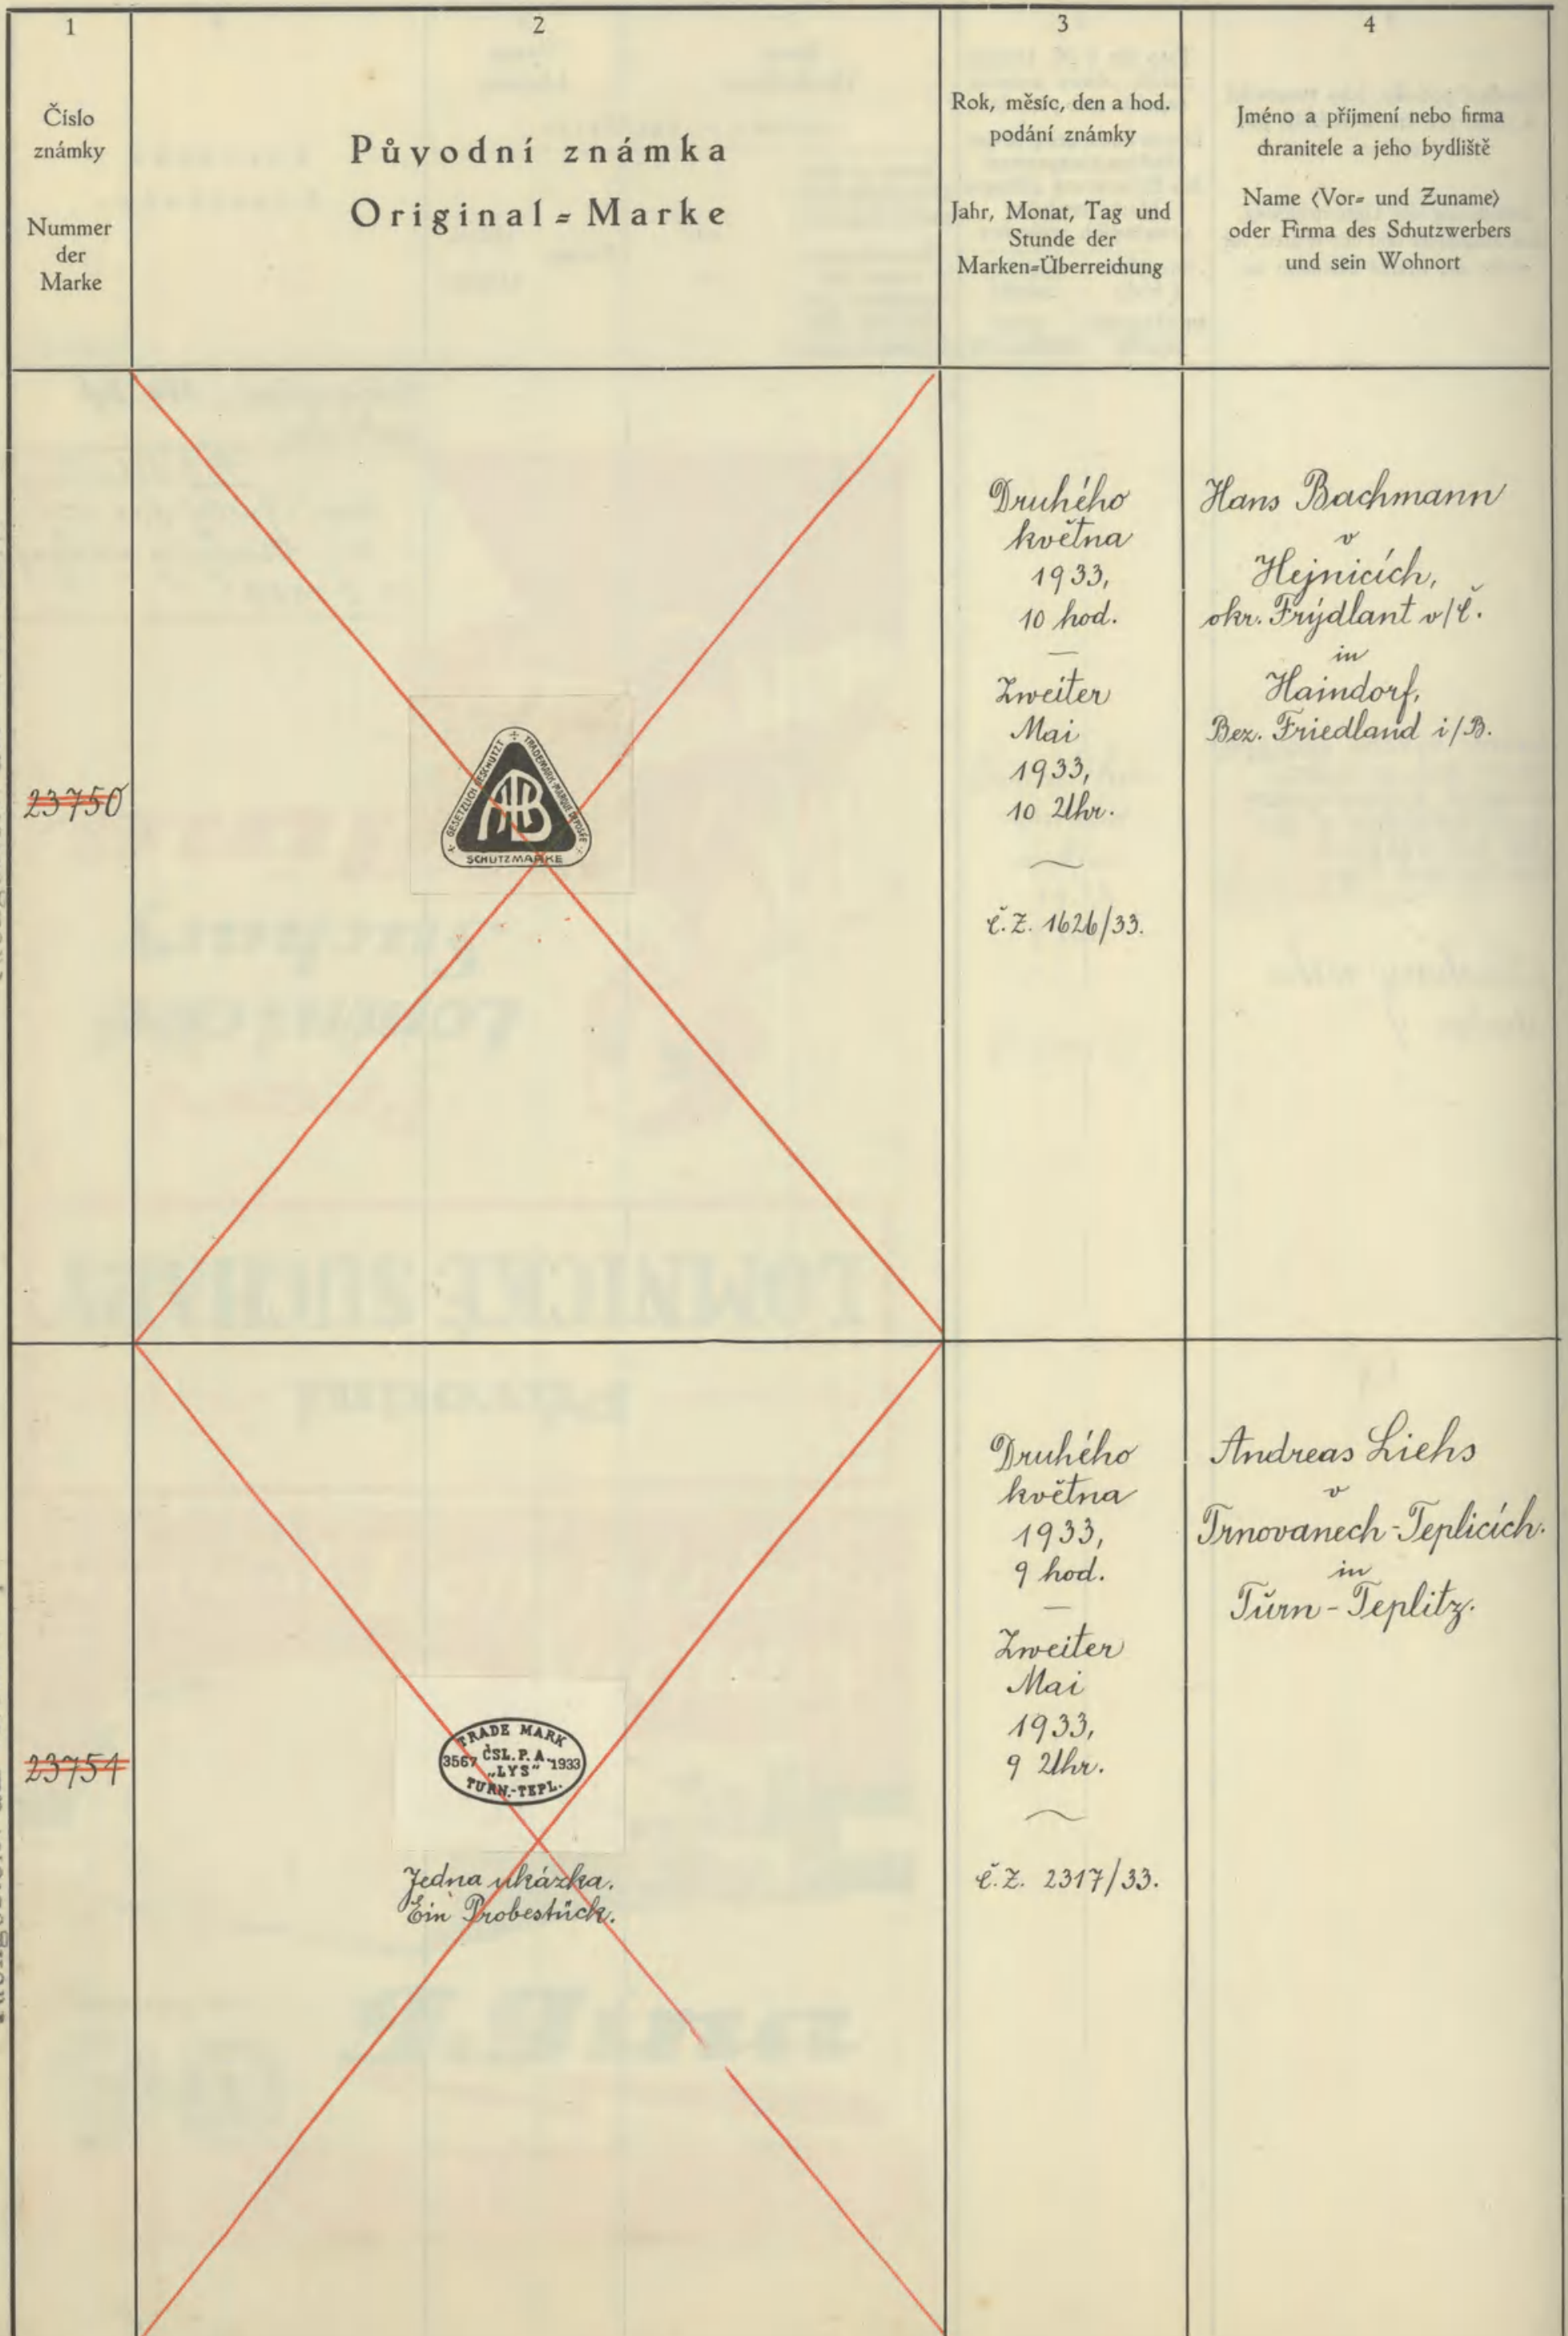 1
Číslo
známky
Nummer
der
Marke
2
Původní známka
Original=Marke
3
Rok, měsíc, den a hod.
podání známky
Jahr, Monat, Tag und
Stunde der
Marken=Überreichung
4
Jméno a příjmení nebo firma
chranitele a jeho bydliště
Name (Vor= und Zuname)
oder Firma des Schutzwerbers
und sein Wohnort
23750
GESETZLICH GESCHÜTZT
TRADEMARK·MARQUE DEPOSÉE
SCHUTZMARKE
Druhého
května
1933,
10 hod.
Zweiter
Mai
1933,
10 Uhr.
č.z. 1626/33.
Hans Bachmann
v
Hejnicích,
okr. Frýdlant v/Č.
in
Haindorf,
Bez. Friedland i/B.
23751
TRADE MARK
3567 ČSL. P. A. 1933
„LYS“
TURN.-TEPL.
Jedna ukázka.
Ein Probestück.
Druhého
května
1933,
9 hod.
Zweiter
Mai
1933,
9 Uhr.
č.z. 2317/33.
Andreas Liehs
v
Trnovanech-Teplicích.
in
Turn-Teplitz.